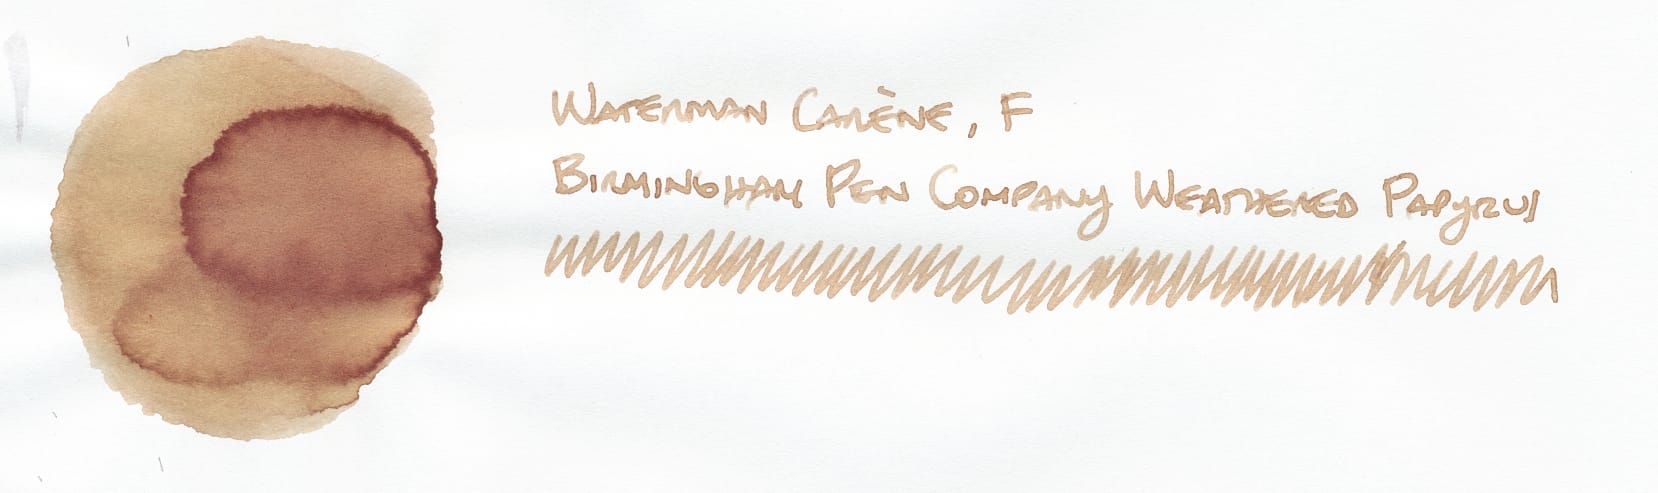 Waterman Carène, F
Birmingham Pen Company Weathered Papyrus